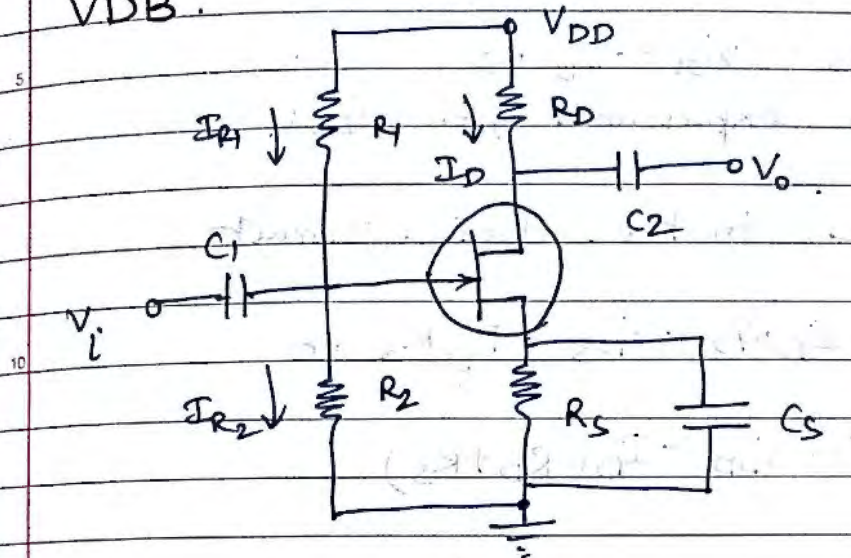 VDB.
V_DD
5
I_R1 R1 R_D
I_D
V_o
C1 C2
V_i
10
I_R2 R2 R_S C_S